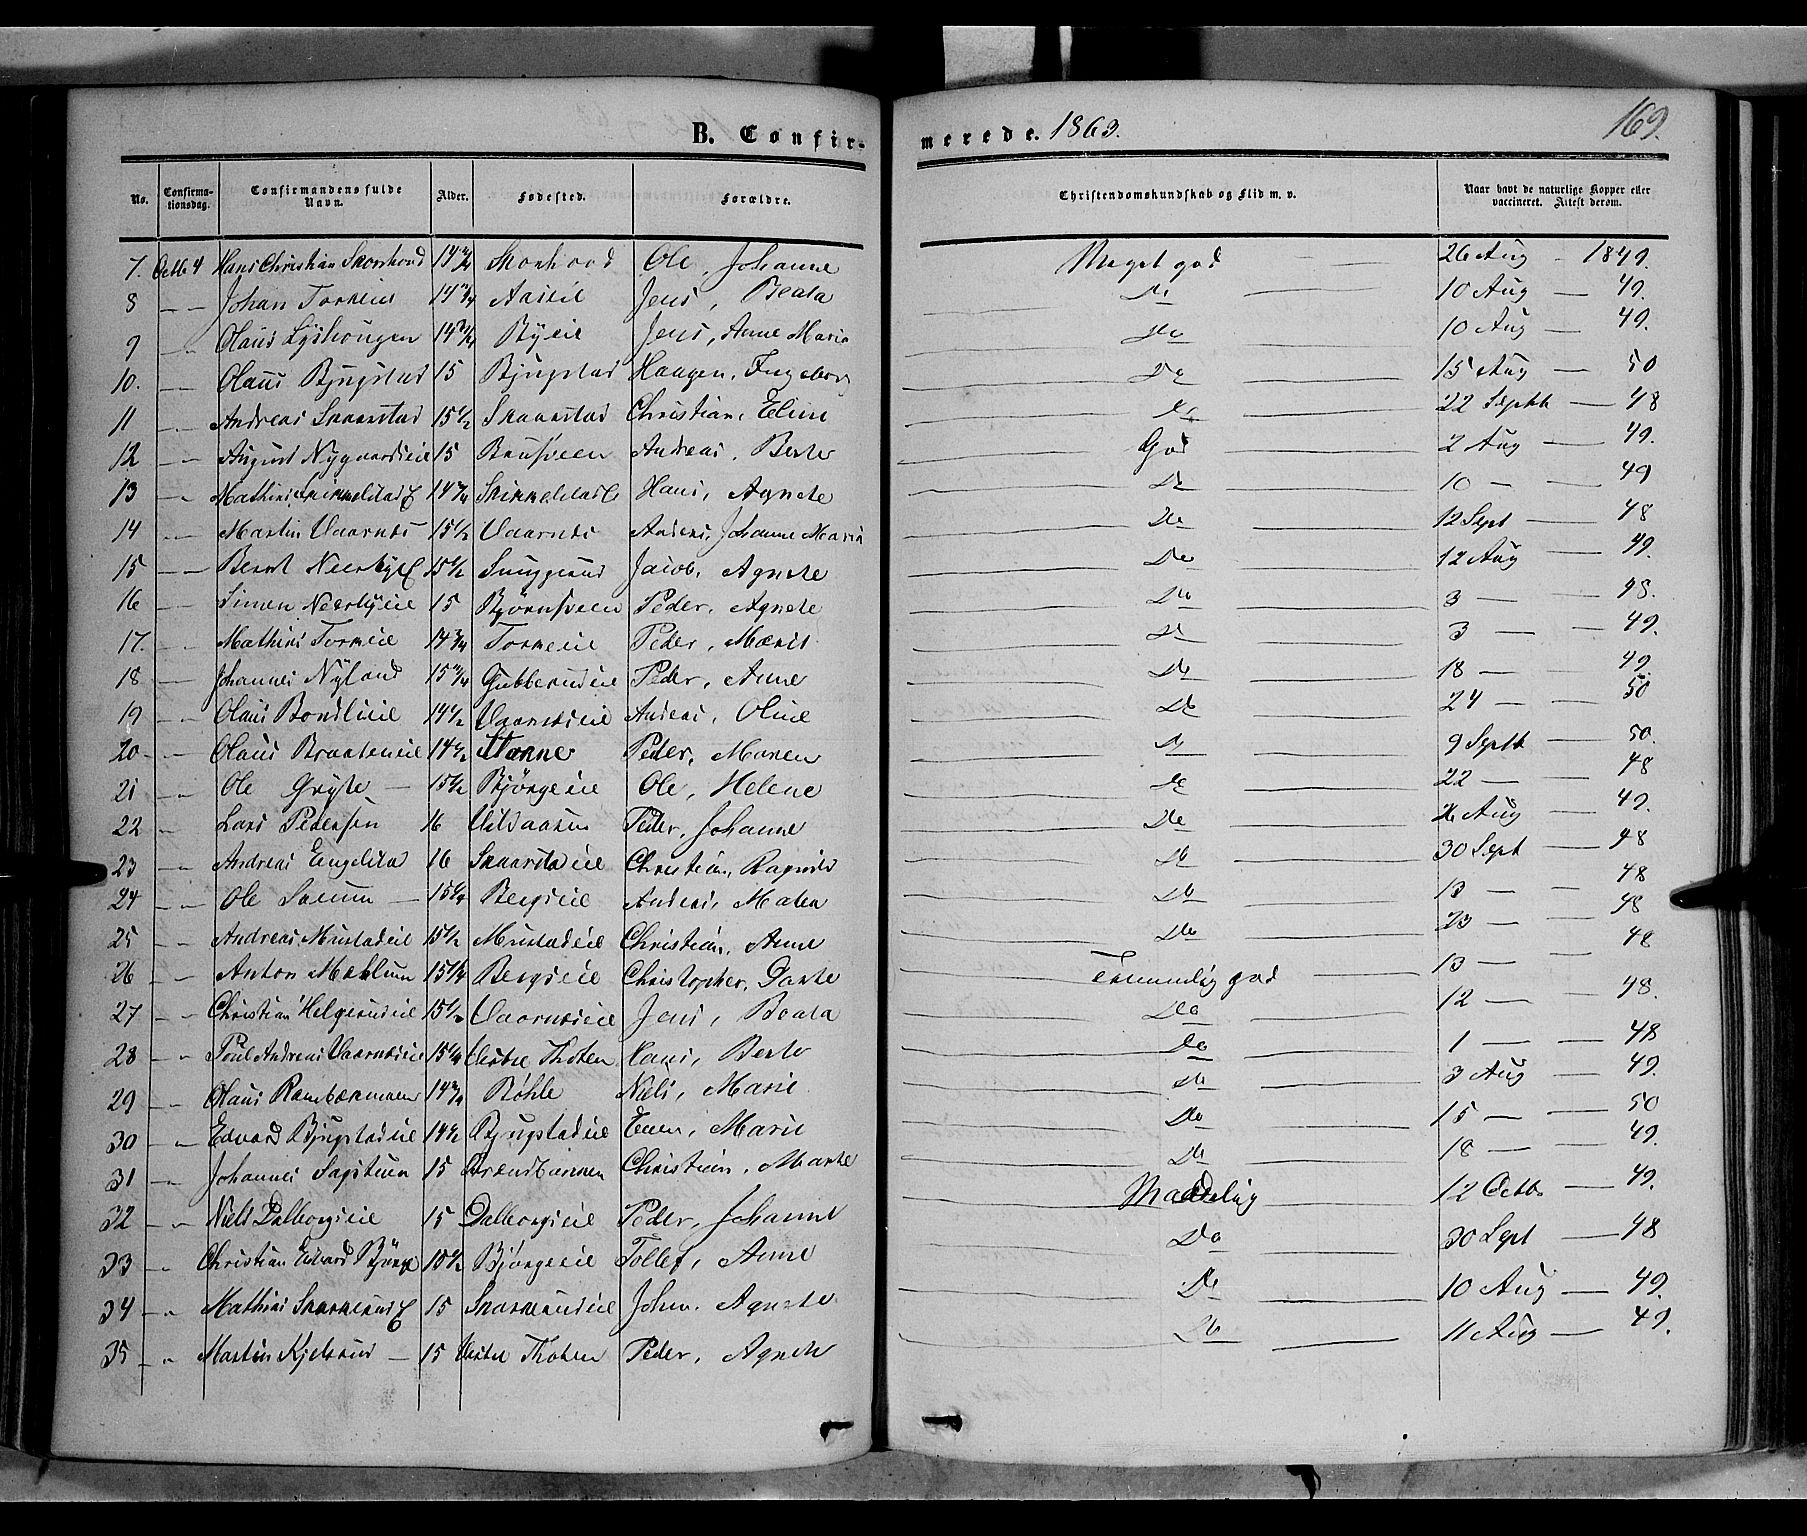 B. Confirmerede. 1863. 169.
No. Confirmationsdag. Confirmandens fulde Navn. Alder. Fødested. Forældre. Christendomskundskab og Flid m. v. Naar havt de naturlige Kopper eller vaccineret. Attest derom.
7. Octb 4 Hans Christian 14 3/4 Ole, Johanne Meget god 26 Aug 1849.
8 — Johan Torkeie 14 3/4 Jens, Beata Do 10 Aug — 49.
9 — Olaus Lyshougen 14 3/4 Byeie Jens, Anne Maria Do 10 Aug — 49.
10. — Olaus Bjugstad 15 Bjugstad Haagen, Ingeborg Do 15 Aug 50
11 — Andreas Skaarstad 15 1/2 Skaarstad Christian, Eline Do 22 Septb — 48
12 — August Nygaardseie 15 Andreas, Berte God 2 Aug — 49.
13 — Mathias Skikkelstad 14 3/4 Skikkelstad Hans, Agnete Do 10 — 49
14 — Martin Vaarnes 15 1/2 Vaarnes Anders, Johanne Maria Do 12 Sept — 48
15 — Bernt 15 1/2 Jacob, Agnete Do 12 Aug — 49.
16 — Simen 15 Bjørnsveen Peder, Agnete Do 3 — 48.
17. — Mathias Torkeie 14 3/4 Torkeie Peder, Marit Do 3 — 49.
18 — Johannes Nyland 15 3/4 Gubberudeie Peder, Anne Do 18 — 49.
19 — Olaus Bondlieie 14 1/2 Vaarneseie Andreas, Oline Do 24 — 50
20 — Olaus Braateneie 14 1/2 Peder, Maren Do 9 Septb — 50.
21 — Ole Gryte — 15 1/2 Bjørgeeie Ole, Helene Do 22 — 48
22 — Lars Pedersen 16 Peder, Johanne Do 26 Aug — 49.
23 — Andreas 16 Skaarstadeie Christian, Ragnild Do 30 Sept — 48
24 — Ole — 15 1/4 Bergseie Andreas, Do 13 — 48
25 — Andreas Mustadeie 15 1/2 Mustadeie Christian, Anne Do 23 — 48
26 — Anton Mæhlum 15 1/4 Bergseie Christopher, Dorte Temmelig god 13 — 48
27 — Christian Helgerudeie 15 1/2 Vaarneseie Jens, Beata Do 12 — 48.
28 — Poul Andreas Vaarneseie 15 1/4 Vestre Thoten Hans, Berte Do 1 — 48
29 — Olaus 14 3/4 Bøhle Niels, Marie Do 3 Aug — 49.
30 — Edvard Bjugstadeie 14 1/2 Bjugstadeie Even, Marie Do 15 — 50
31 — Johannes Sagstuen 15 Christian, Marte Do 18 — 49.
32 — Niels Dalborgseie 15 Dalborgseie Peder, Johanne Maadelig 12 Octb — 49.
33 — Christian Edvard Bjørge 15 1/2 Bjørgeeie Tollef, Anne Do 30 Sept — 48
34 — Mathias 15 Skarkerudeie John, Agnete Do 10 Aug — 49.
35 — Martin Kjelsrud — 15 Vestre Thoten Peder, Agnete Do 11 Aug — 49.